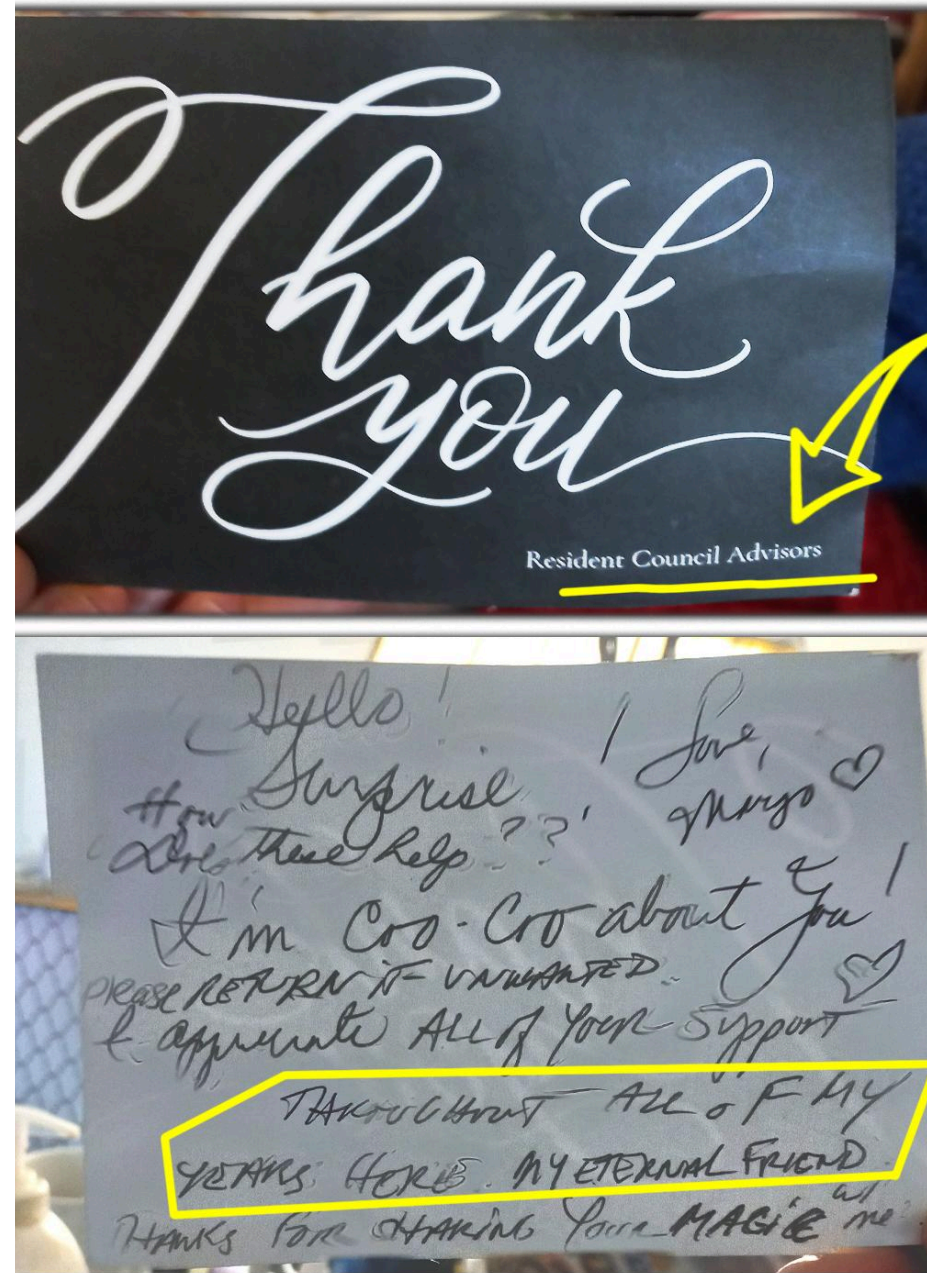 Thank
you
Resident Council Advisors
Hello!
Surprise! Love,
Margo
How
Does these help??
I'm Coo-Coo about You!
please RETURN IF UNWANTED.
I appreciate ALL of Your Support
THROUGHOUT ALL OF MY
YEARS HERE. MY ETERNAL FRIEND.
THANKS FOR SHARING Your MAGIC w/ me